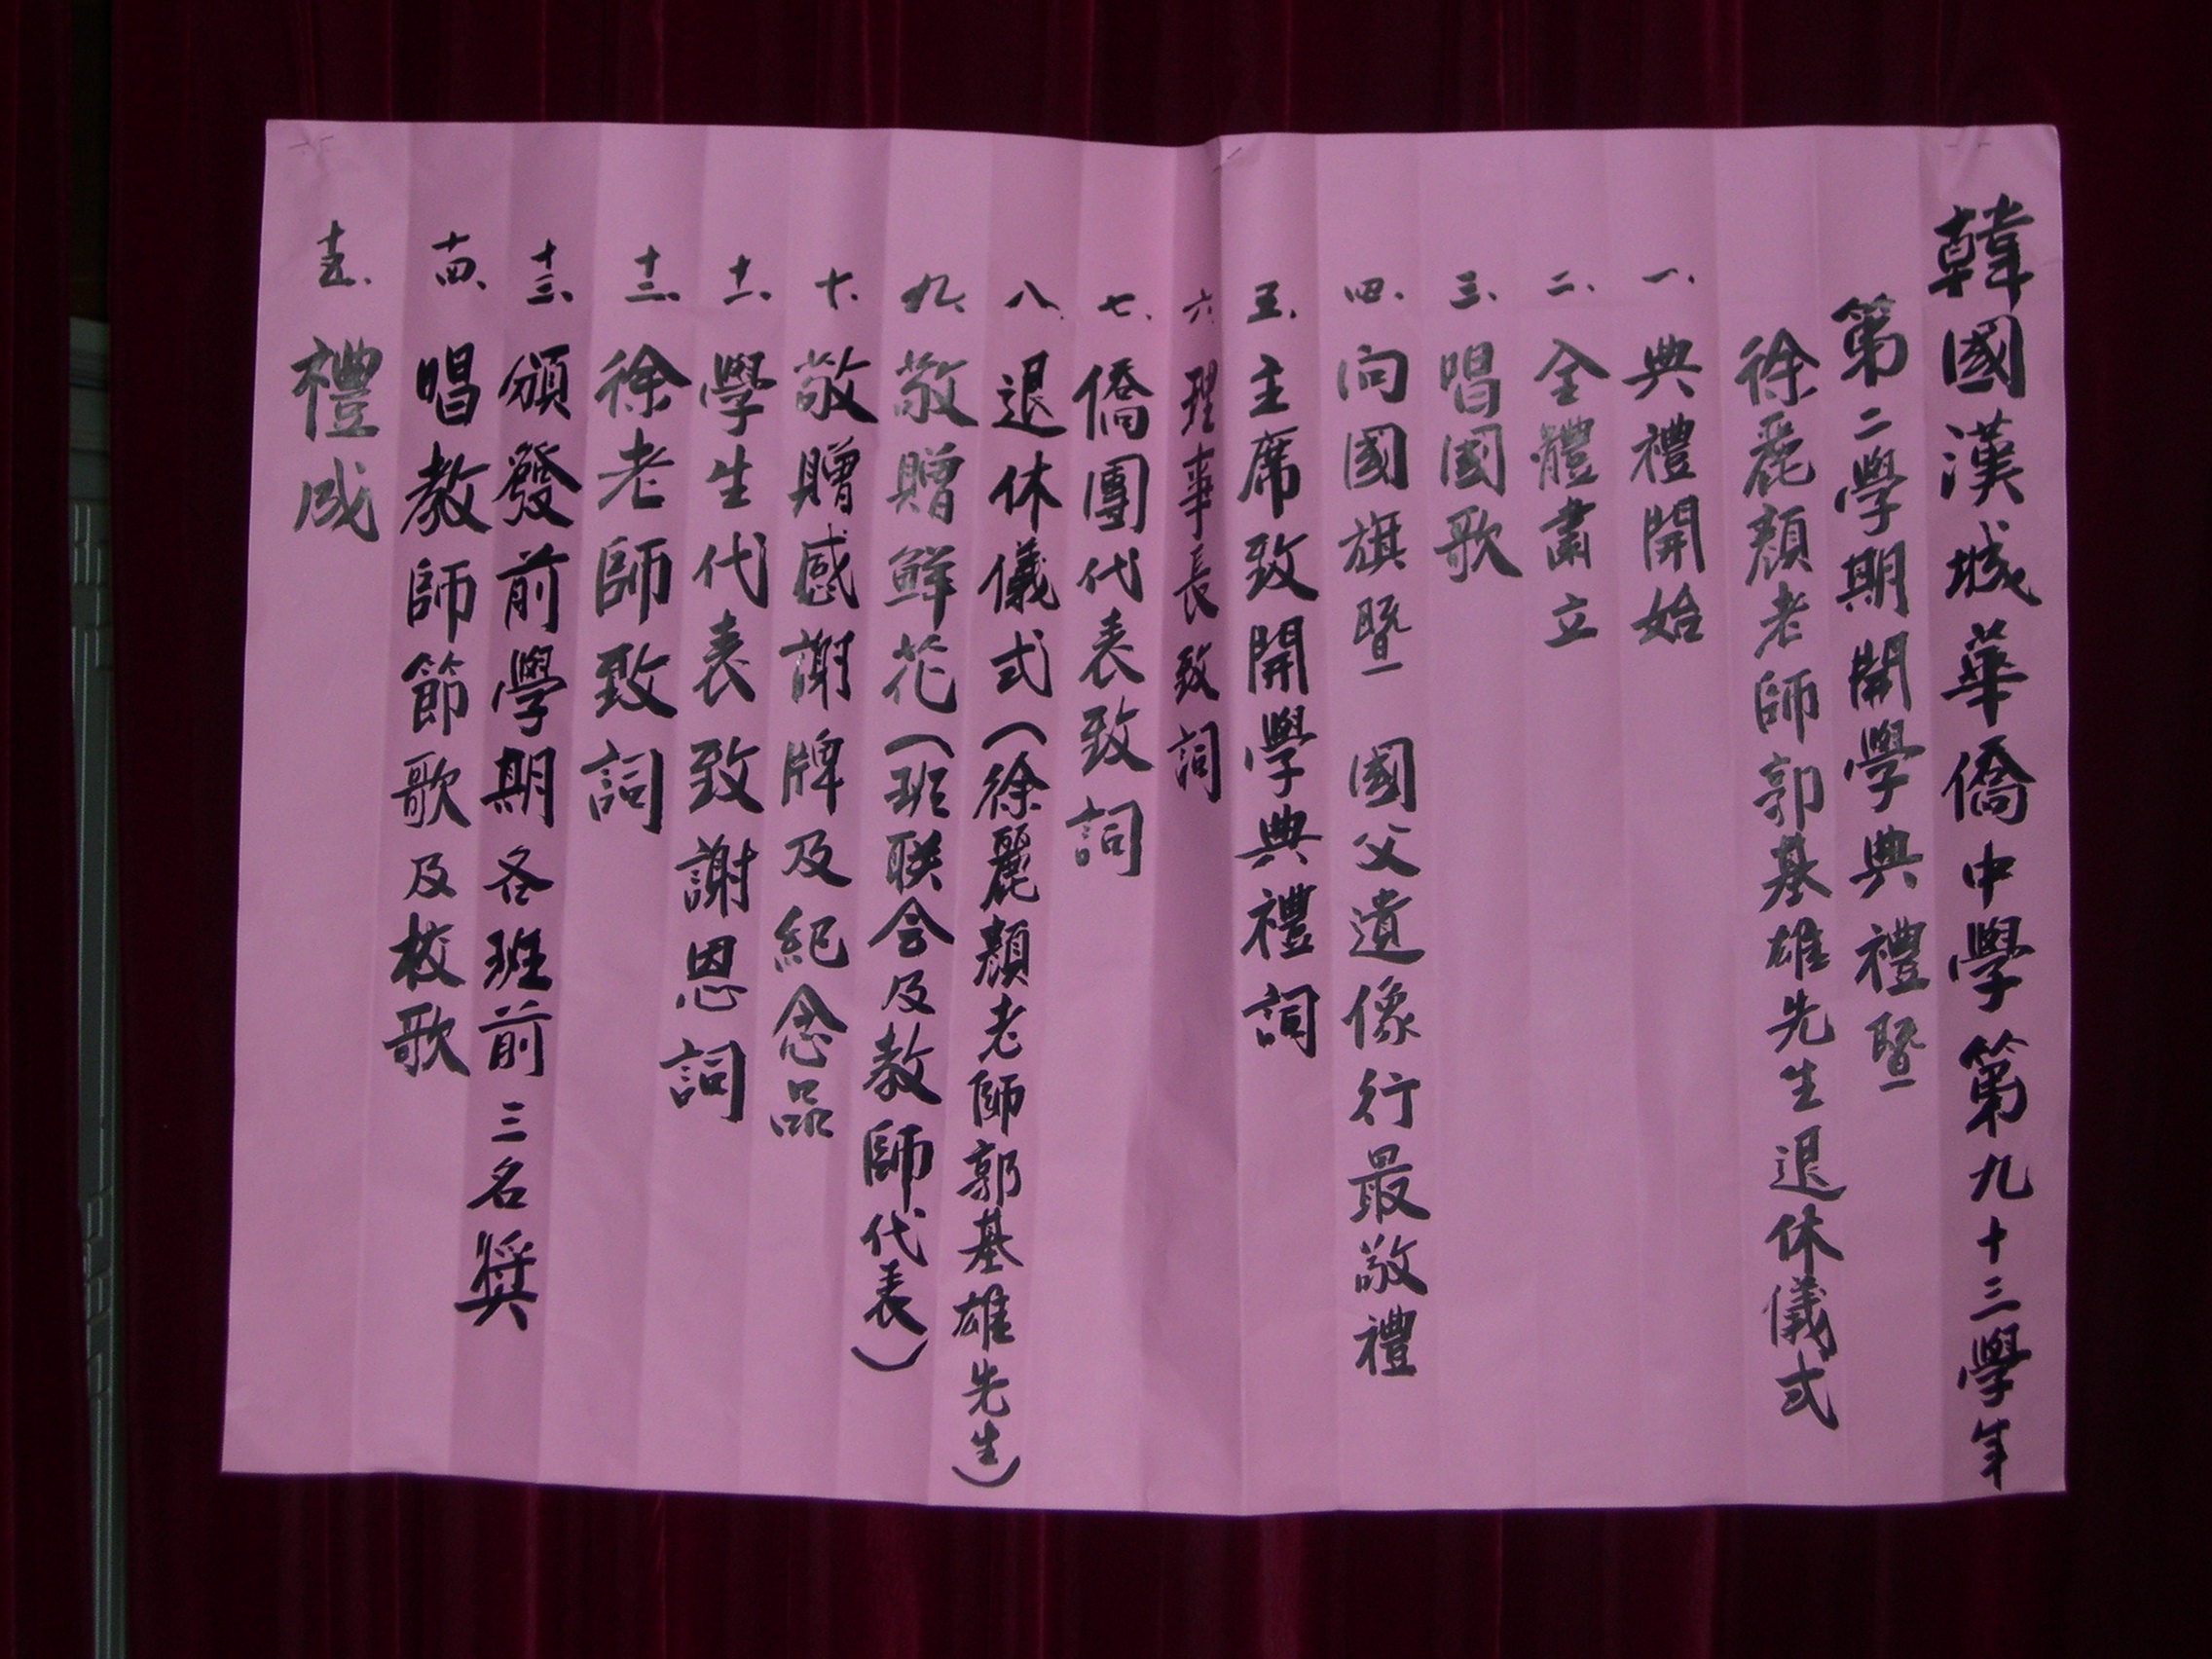 韓國漢城華僑中學第九十三學年
第二學期開學典禮暨
徐麗顏老師郭基雄先生退休儀式
一、典禮開始
二、全體肅立
三、唱國歌
四、向國旗暨 國父遺像行最敬禮
五、主席致開學典禮詞
六、理事長致詞
七、僑團代表致詞
八、退休儀式(徐麗顏老師郭基雄先生)
九、敬贈鮮花(班联会及教師代表)
十、敬贈感謝牌及紀念品
十一、學生代表致謝恩詞
十二、徐老師致詞
十三、頒發前學期各班前三名獎
十四、唱教師節歌及校歌
十五、禮成